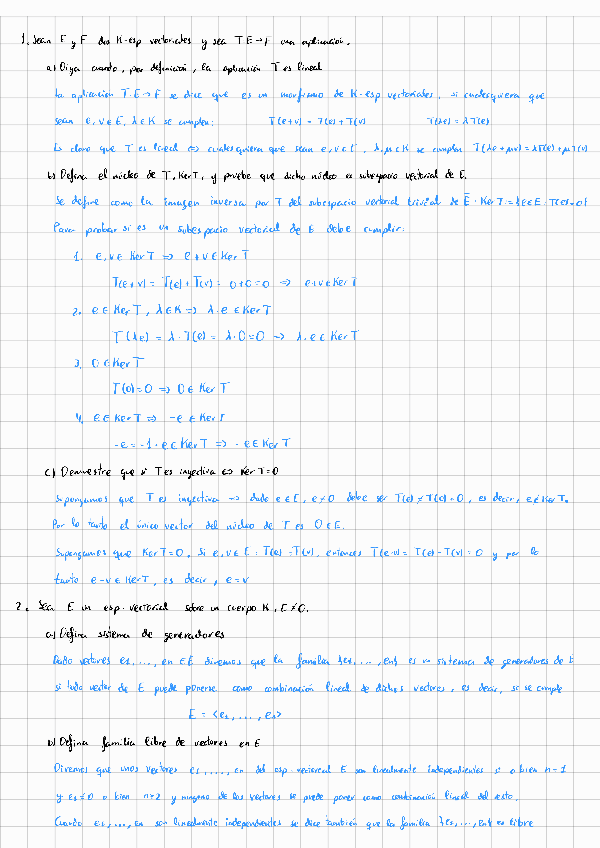 1. Sean E y F dos K-esp vectoriales y sea T:E→F una aplicación.
a) Diga cuando, por definición, la aplicación T es lineal
La aplicación T:E→F se dice que es un morfismo de K-esp vectoriales, si cualesquiera que
sean e,v∈E, λ∈K se cumplen: T(e+v) = T(e)+T(v) T(λe) = λT(e)
Es claro que T es lineal ⇔ cualesquiera que sean e,v∈E, λ,μ∈K se cumplen T(λe+μv)=λT(e)+μT(v)
b) Defina el núcleo de T, KerT, y pruebe que dicho núcleo es subespacio vectorial de E.
Se define como la imagen inversa por T del subespacio vectorial trivial de E. Ker T = {e∈E: T(e)=0}
Para probar si es un subespacio vectorial de E debe cumplir:
1. e,v∈KerT ⇒ e+v∈KerT
T(e+v) = T(e)+T(v) = 0+0=0 ⇒ e+v∈KerT
2. e∈KerT, λ∈K ⇒ λ·e∈KerT
T(λe) = λ·T(e) = λ·0=0 ⇒ λ·e∈KerT
3. 0∈KerT
T(0)=0 ⇒ 0∈KerT
4. e∈KerT ⇒ -e∈KerT
-e=-1·e∈KerT ⇒ -e∈KerT
c) Demuestre que si T es inyectiva ⇔ KerT=0
Supongamos que T es inyectiva → dado e∈E, e≠0 debe ser T(e)≠T(0)=0, es decir, e∉KerT.
Por lo tanto el único vector del núcleo de T es 0∈E.
Supongamos que KerT=0, Si e,v∈E: T(e)=T(v), entonces T(e-v)=T(e)-T(v)=0 y por lo
tanto e-v∈KerT, es decir, e=v
2. Sea E un esp. vectorial sobre un cuerpo K, E≠0.
a) Defina sistema de generadores
Dado vectores e1,...,en∈E diremos que la familia {e1,...,en} es un sistema de generadores de E
si todo vector de E puede ponerse como combinación lineal de dichos vectores, es decir, si se cumple
E = <e1,...,en>
b) Defina familia libre de vectores en E
Diremos que unos vectores e1,...,en del esp. vectorial E son linealmente independientes si o bien n=1
y e1≠0 o bien n≥2 y ninguno de los vectores se puede poner como combinación lineal del resto.
Cuando e1,...,en son linealmente independientes se dice también que la familia {e1,...,en} es libre